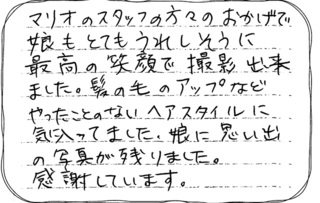 マリオのスタッフの方々のおかげで
娘もとてもうれしそうに
最高の笑顔で撮影出来
ました。髪の毛のアップなど
やったことのないヘアスタイルに
気に入ってました。娘に思い出
の写真が残りました。
感謝しています。